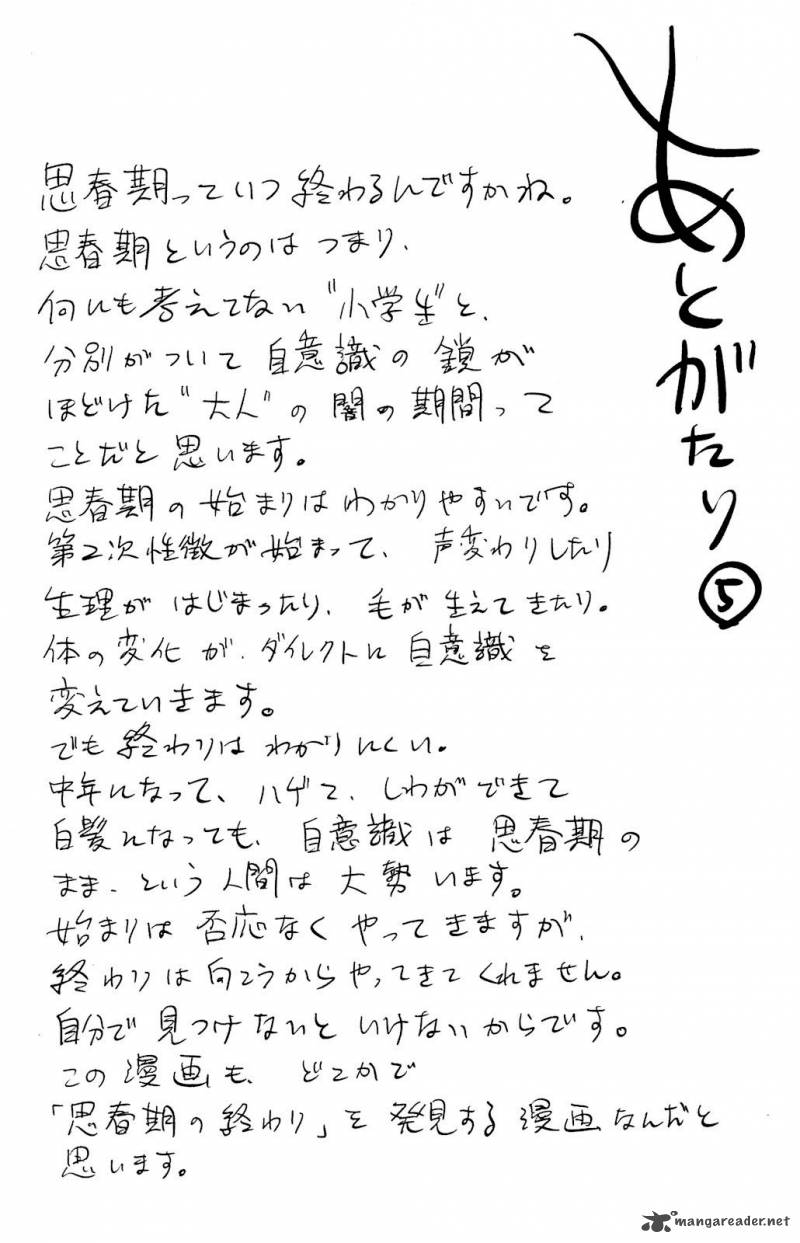 あとがたり⑤
思春期っていつ終わるんですかね。
思春期というのは つまり、
何にも考えてない“小学生”と、
分別がついて 自意識の鎖が
ほどけた“大人”の闇の期間って
ことだと思います。
思春期の始まりはわかりやすいです。
第2次性徴が始まって、声変わりしたり
生理が はじまったり、毛が生えてきたり。
体の変化が、ダイレクトに自意識を
変えていきます。
でも終わりは わかりにくい。
中年になって、ハゲて、しわができて
白髪になっても、自意識は 思春期の
まま、という人間は 大勢います。
始まりは 否応なく やってきますが、
終わりは向こうからやってきてくれません。
自分で見つけないと いけないからです。
この漫画も、どこかで
「思春期の終わり」を発見する漫画なんだと
思います。
mangareader.net